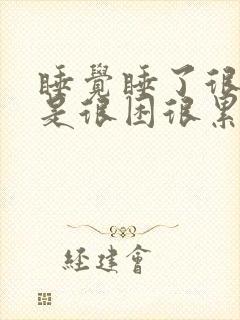 睡覺睡了很
是很困很累
经建會